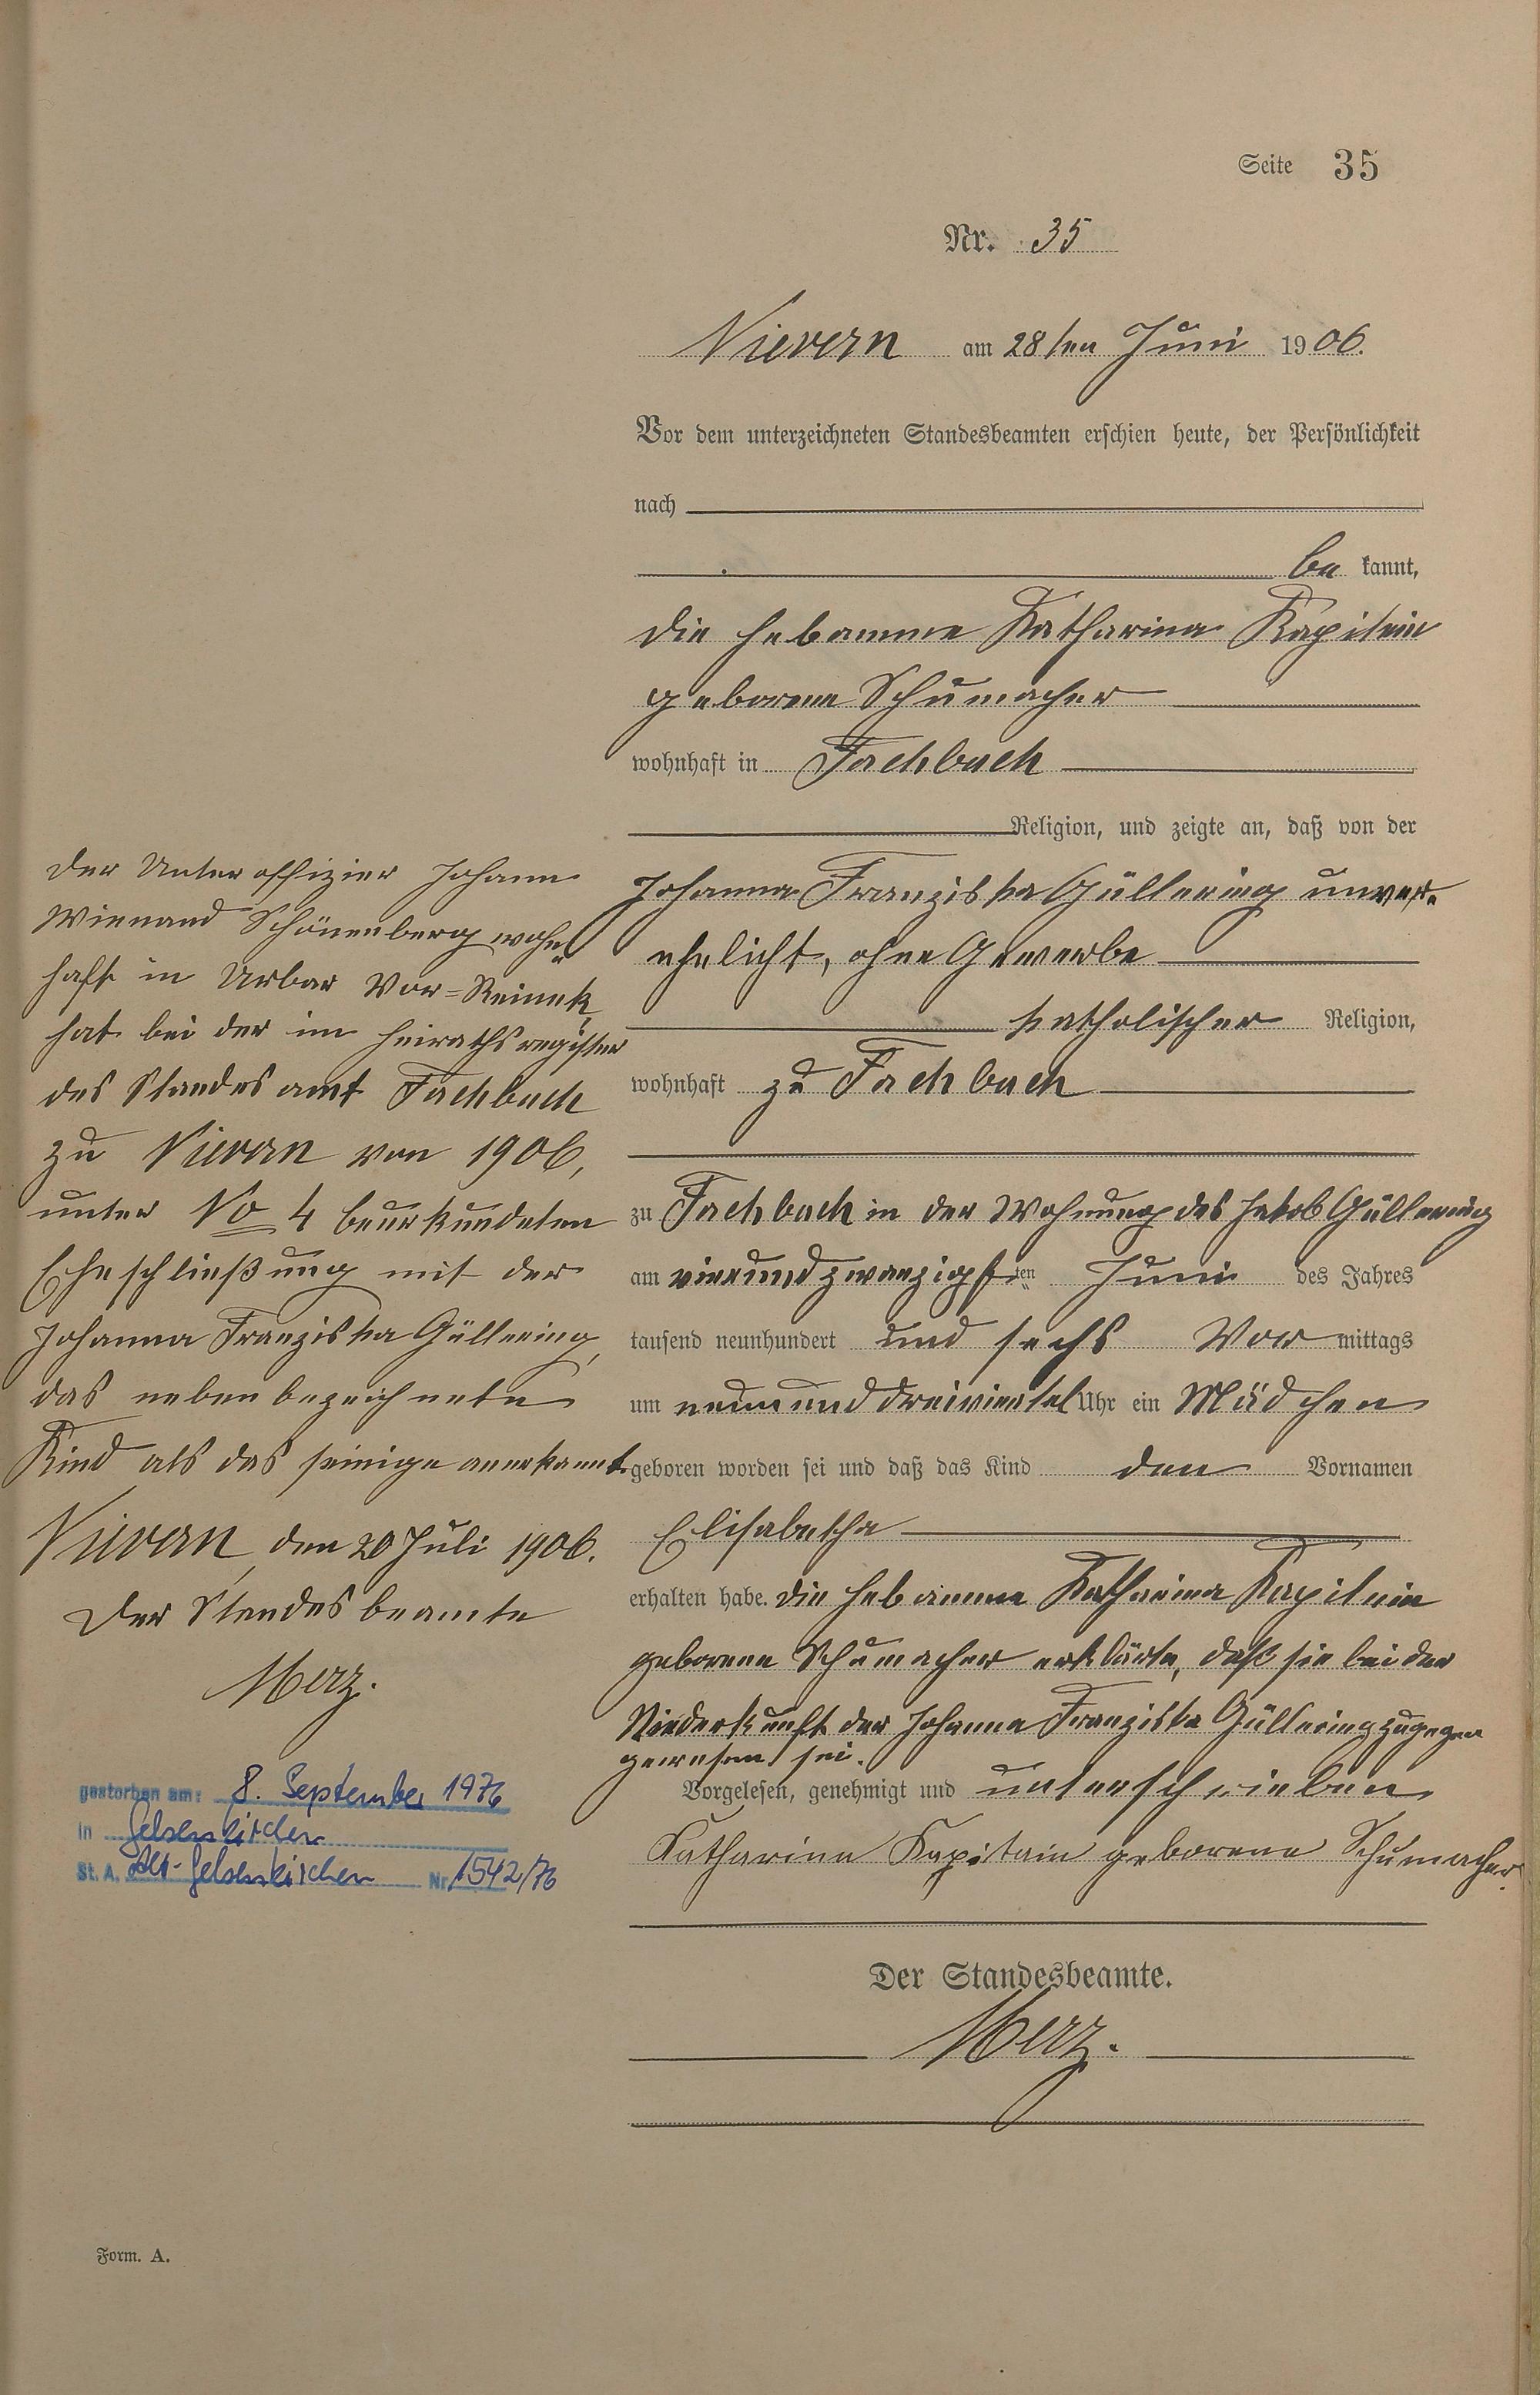 Seite 35
Nr. 35
Nievern am 28ten Juni 1906.
Vor dem unterzeichneten Standesbeamten erschien heute, der Persönlichkeit
nach
be kannt,
die Hebamme Katharina Kapitain
geborene Schumacher
wohnhaft in Fachbach
Religion, und zeigte an, daß von der
Johanna Franziska Güllering unver-
ehelicht, ohne Gewerbe
katholischer Religion,
wohnhaft zu Fachbach
zu Fachbach in der Wohnung des Jakob Güllering
am vierundzwanzigsten Juni des Jahres
tausend neunhundert und sechs Vor mittags
um neun und dreiviertel Uhr ein Mädchen
geboren worden sei und daß das Kind den Vornamen
Elisabetha
erhalten habe. Die Hebamme Katharina Kapitain
geborene Schumacher erklärte, daß sie bei der
Niederkunft der Johanna Franziska Güllering zugegen
gewesen sei.
Vorgelesen, genehmigt und unterschrieben
Katharina Kapitain geborene Schumacher.
Der Standesbeamte.
Merz.
Der Unteroffizier Johann
Wienand Schönenberg wohn-
haft in Urbar Vor=
hat bei der im Heirathsregister
des Standesamt Fachbach
zu Nievern von 1906,
unter No 4 beurkundeten
Eheschließung mit der
Johanna Franziska Güllering,
das nebenbezeichnete
Kind als das seinige anerkannt.
Nievern, den 20 Juli 1906.
Der Standesbeamte
Merz.
gestorben am: 8. September 1976
in Gelsenkirchen
St. A. Alt-Gelsenkirchen Nr. 1542/76
Form. A.